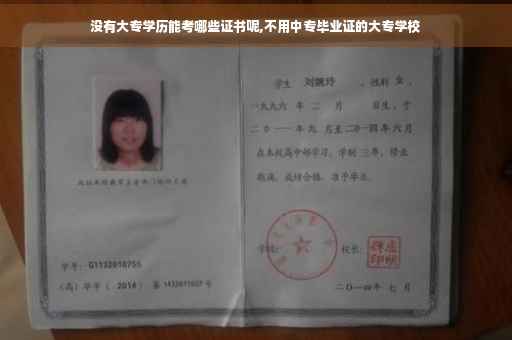 没有大专学历能考哪些证书呢,不用中专毕业证的大专学校
学生 刘婉玲 ，性别 女 ，
一九九六 年 二 月 日生，于
二〇一一年九 月至二〇一四年 六 月
在本校高中部学习，学制 三年，修业
期满，成绩合格，准予毕业。
学校： 校长：
学号： G1132010755
（高）毕字（ 2014 ）第 1432011027 号
二〇一四年 七 月